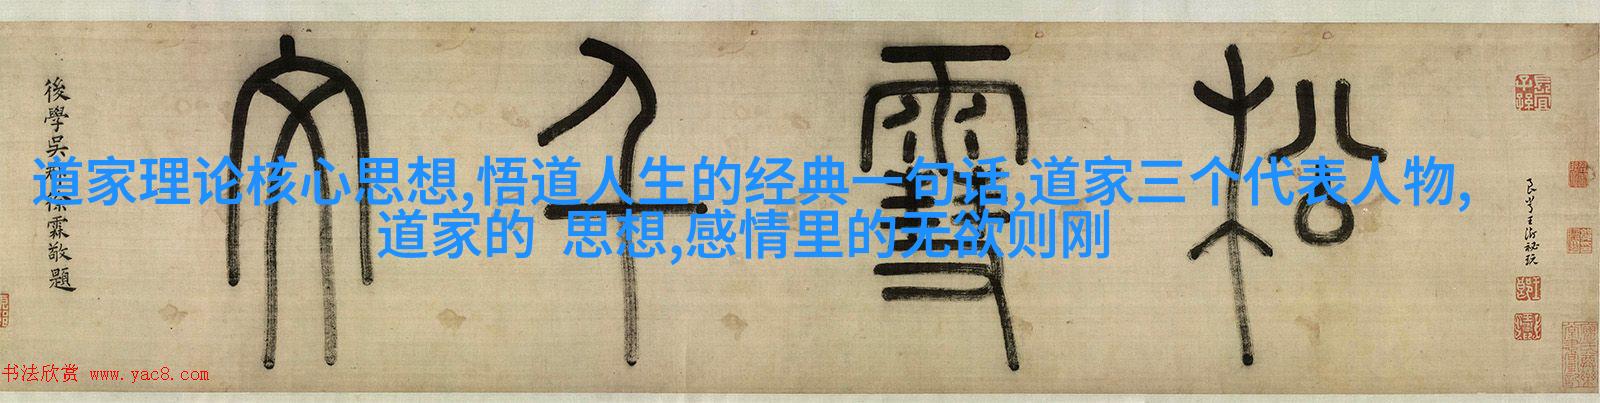 道家理论核心思想,悟道人生的经典一句话,道家三个代表人物,
道家的 思想,感情里的无欲则刚
松雪千文
良常王澍祕玩
後學吳郡徐霖敬題
书法欣赏 www.yac8.com